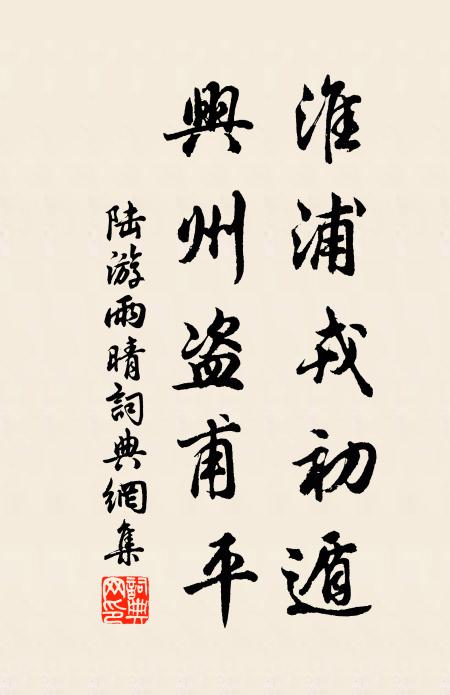 淮浦戎初遁
興州盗甫平
陆游雨晴詞典網集
詞典网印